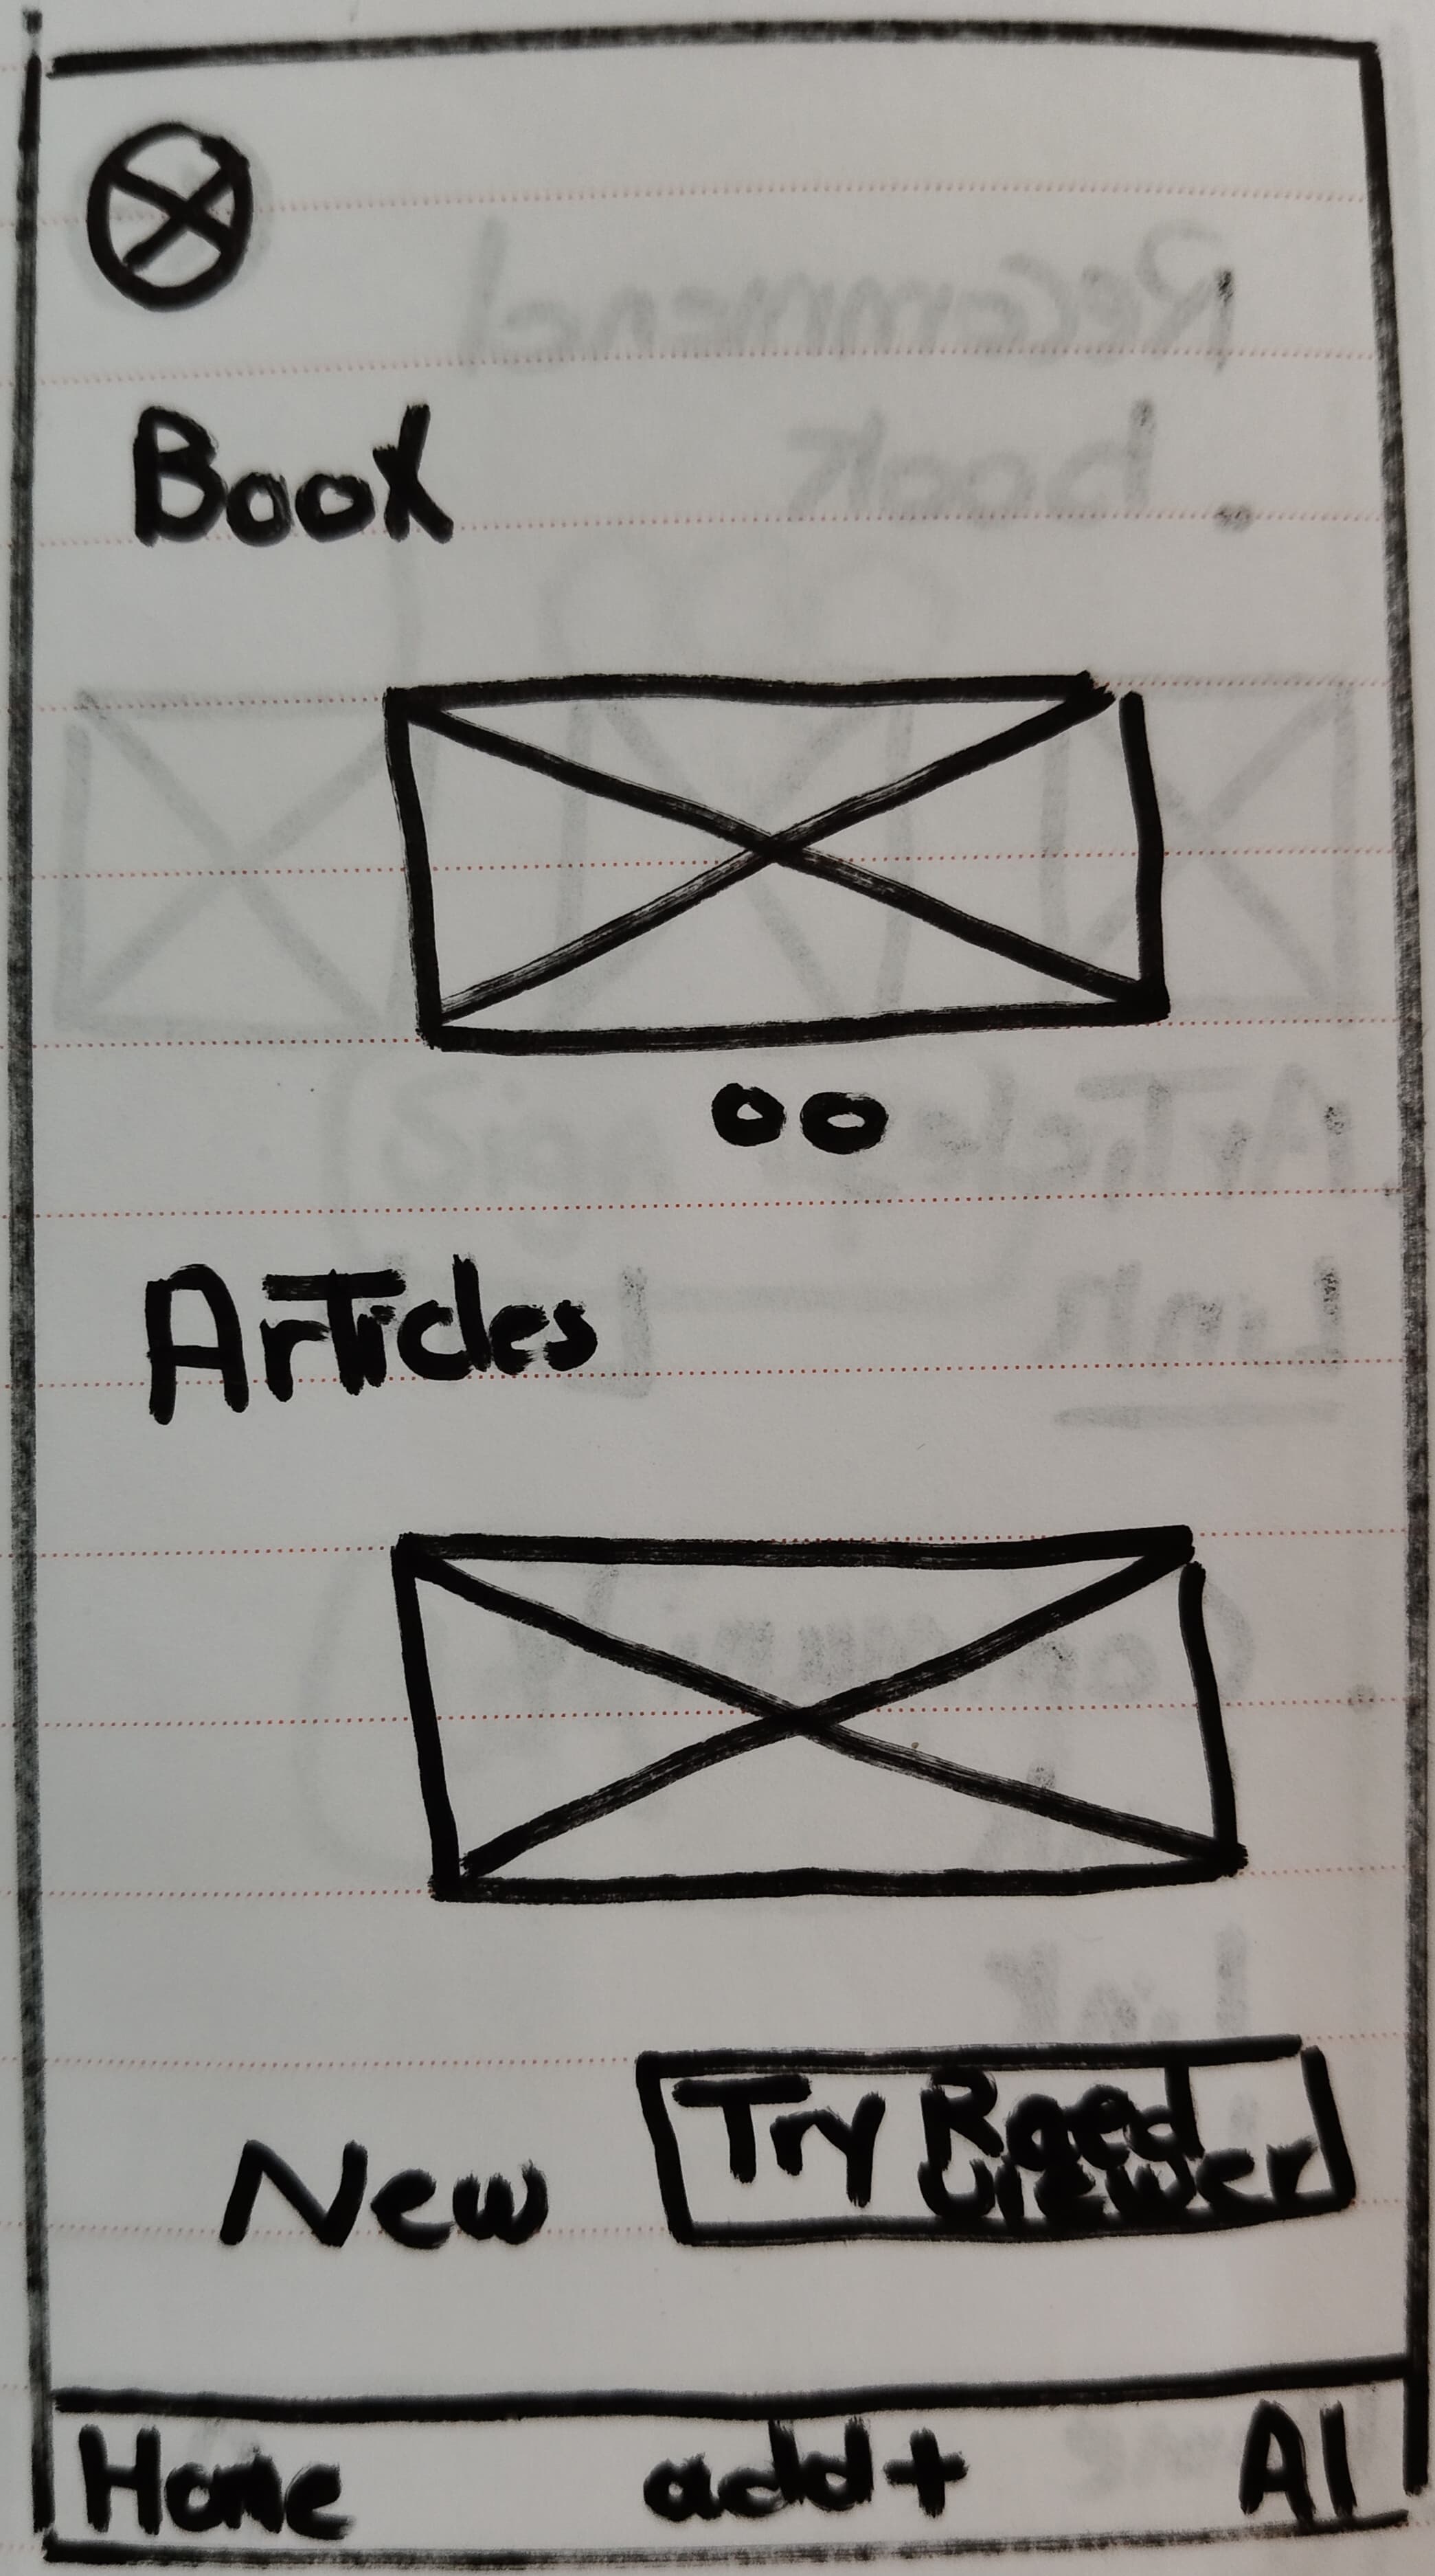 Book
Articles
New
Try Raed
viewer
Home add+ AI